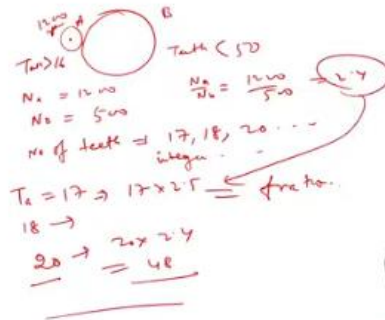 1200 rpm
A
B
Teeth < 50
N_A = 1200
N_B = 500
N_A/N_B = 1200/500 = 2.4
No of teeth = 17, 18, 20 ....
integer ..
T_A = 17 ⇒ 17 × 2.5 = fratio..
18 →
20 → 20 × 2.4
= 48